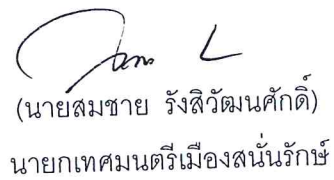 (นายสมชาย รังสิวัฒนศักดิ์)
นายกเทศมนตรีเมืองสนั่นรักษ์